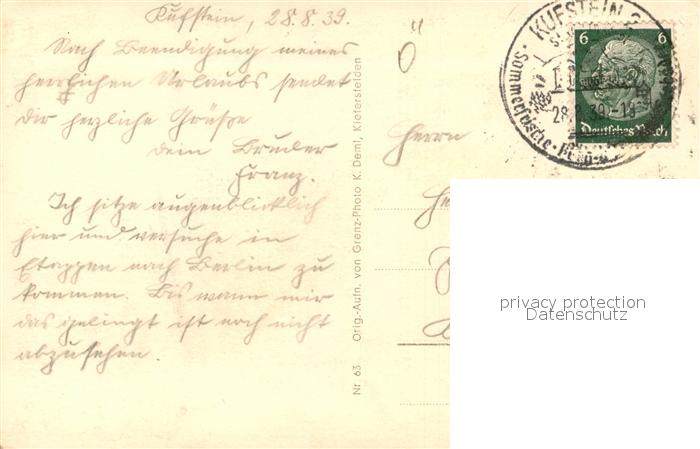 Kufstein, 28.8.39.
Nach Beendigung meines
herrlichen Urlaubs sendet
dir herzliche Grüße
dein Bruder
Franz.
Ich sitze augenblicklich
hier und versuche in
Etappen nach Berlin zu
kommen. Bis wann mir
das gelingt ist noch nicht
abzusehen.
Nr 63 Orig.-Aufn. von Grenz-Photo K. Deml, Kiefersfelden
Herrn
KUFSTEIN 2
28. 39.-18
Sommerfrische
6 6
Deutsches Reich
privacy protection
Datenschutz